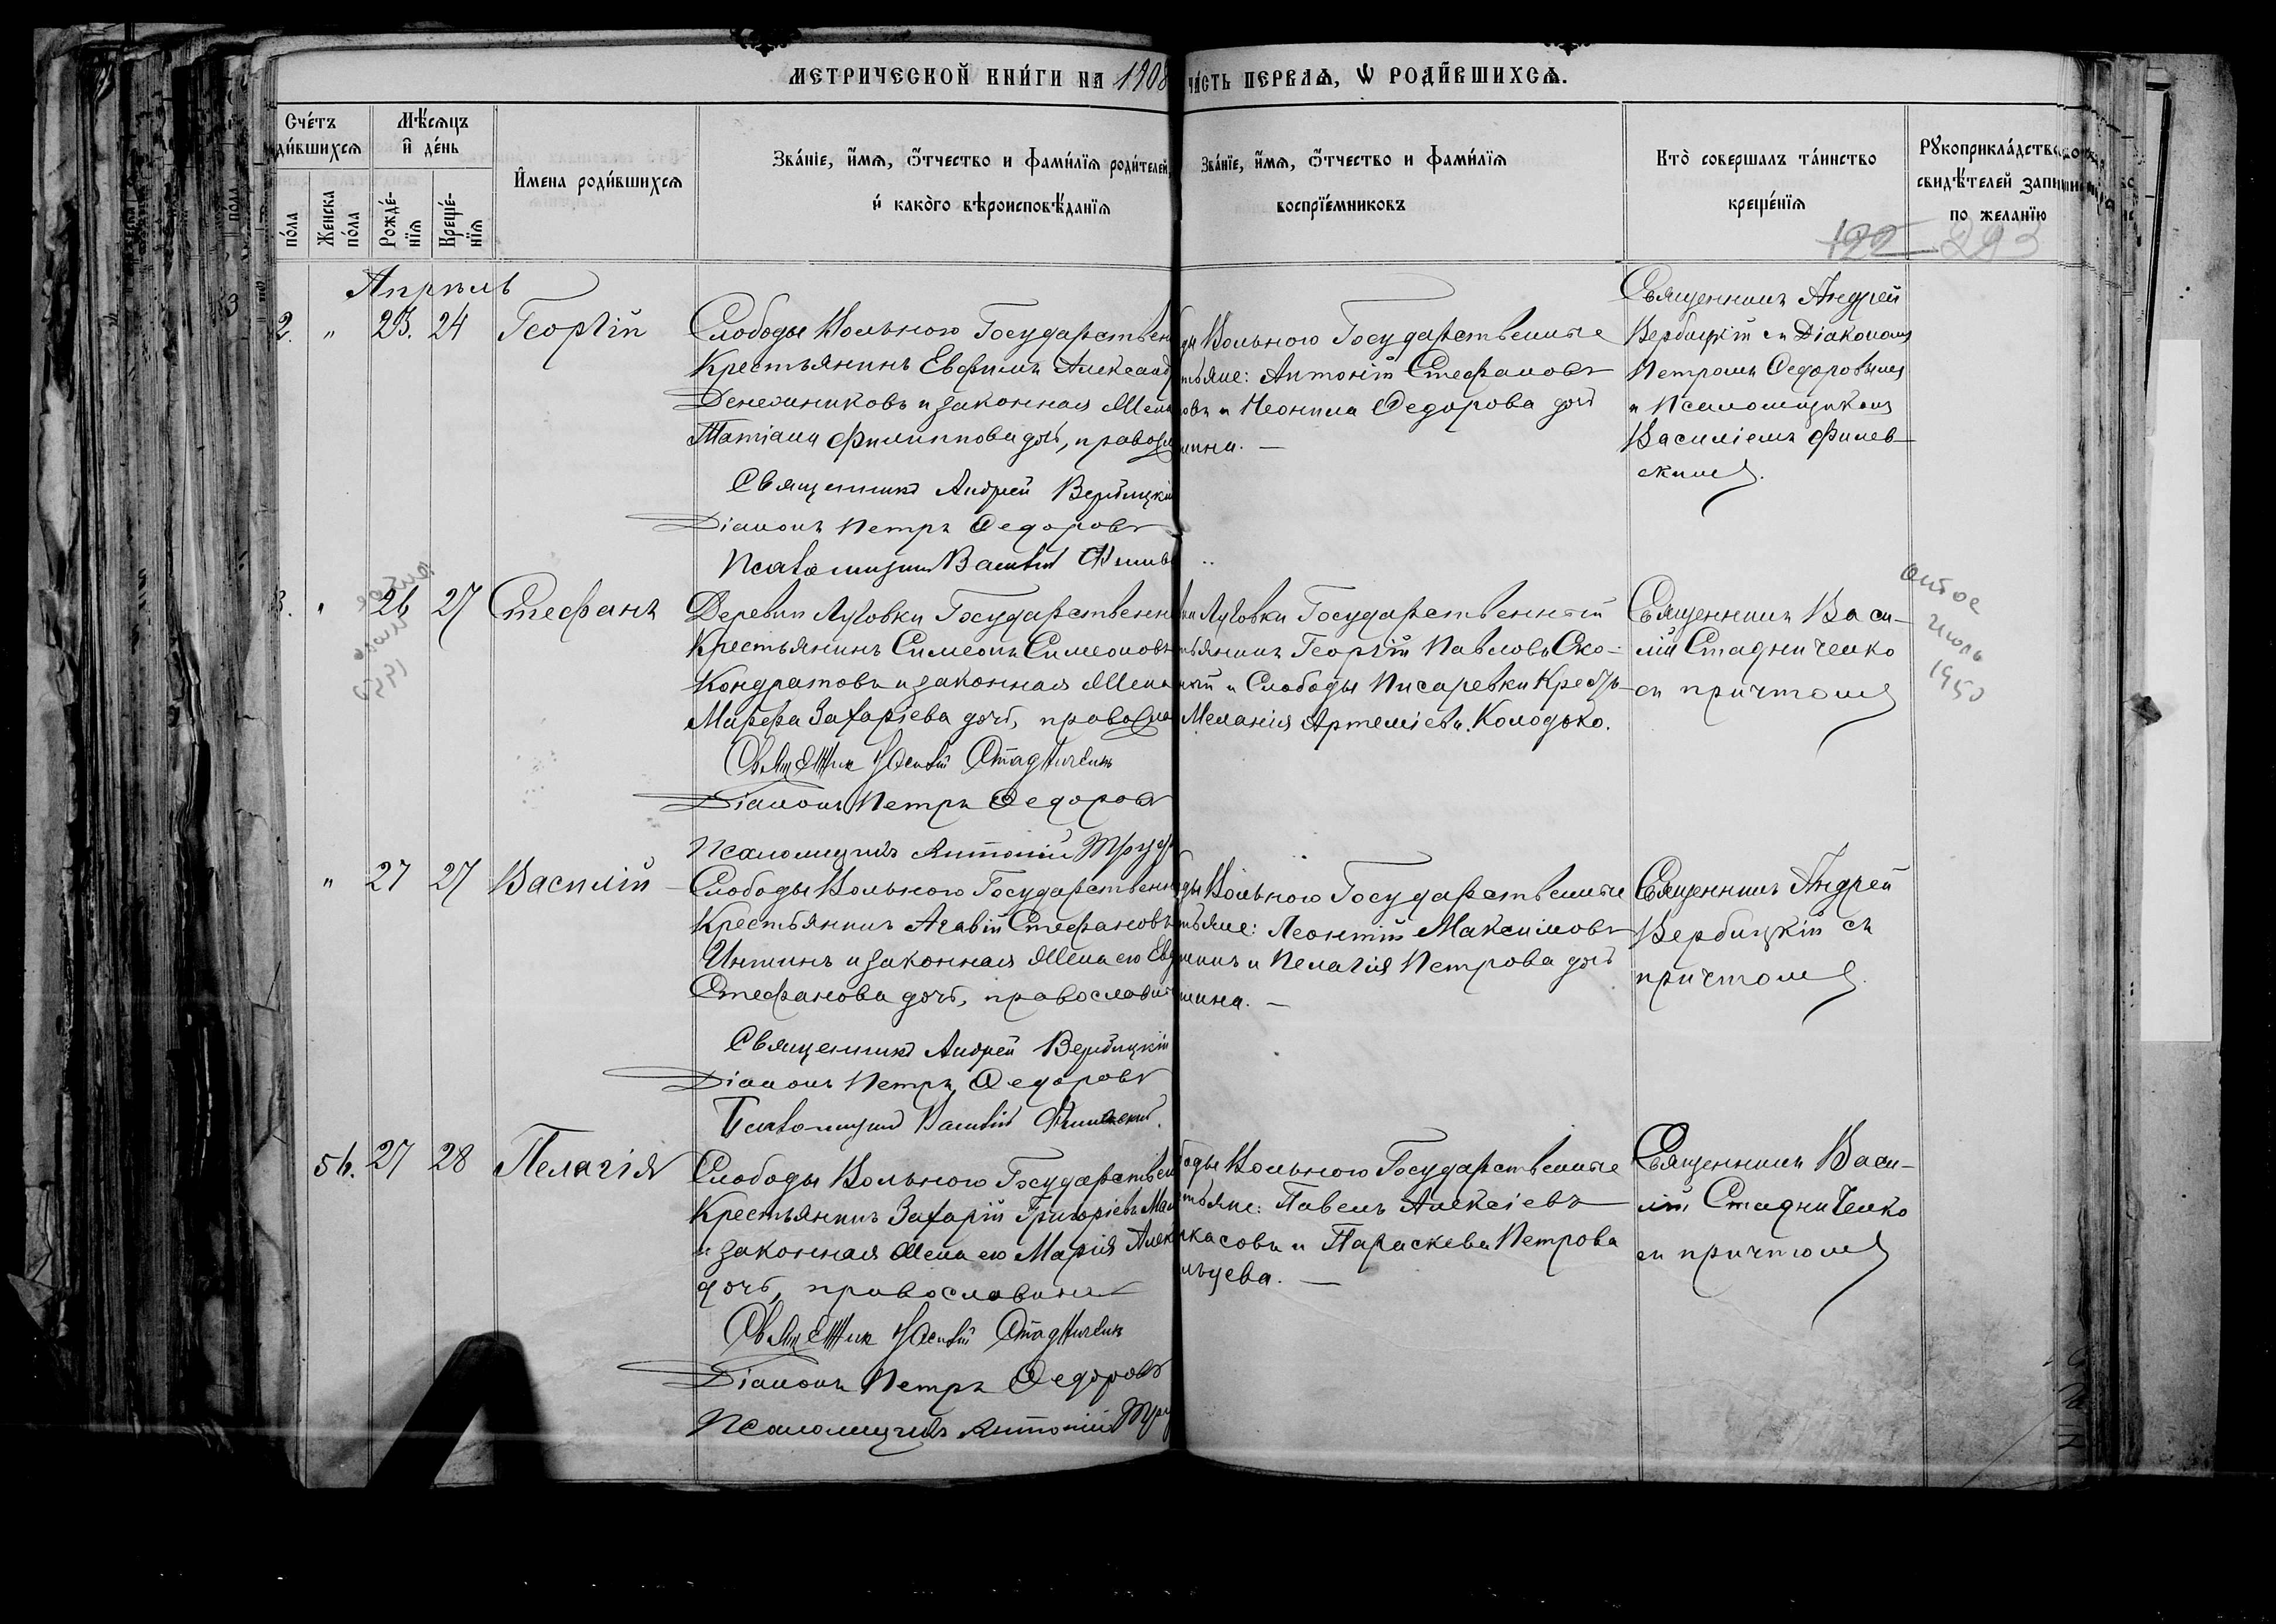 МЕТРИЧЕСКОЙ КНИ́ГИ НА 1908
ЧА́СТЬ ПЕРВАѦ, Ѡ РОДИ́ВШИХСѦ.
Сче́тъ
ди́вшихсѧ
Мѣ́сѧцъ
и҆ де́нь
по́ла
Женска
по́ла
Рожде́-
нїѧ
Креще́-
нїѧ
И҆мена роди́вшихсѧ
Зва́нїе, и҆́мѧ, ѻ҆́тчество и фами́лїѧ роди́телей,
и҆ како́го вѣроисповѣ́данїѧ
Зва́нїе, и҆́мѧ, ѻ҆́тчество и фами́лїѧ
воспрїе́мниковъ
Кто̀ соверша́лъ та́инство
креще́нїѧ
Рꙋкоприкла́дство
свидѣ́телей запи
по жела́нїю
122 293
Апрѣль
2. " 23. 24 Георгій
Слободы Вольного Государствен
Крестьянинъ Евфимъ Александ
Денежниковъ и законная Жена
Татіана Филиппова дочь, правосл
Священникъ Андрей Вербицкій
Діаконъ Петръ Федоровъ
Псаломщикъ Василій Филев
ды Вольного Государственные
тьяне: Антоній Стефановъ
овъ и Неонила Федорова дочь
шина. —
Священникъ Андрей
Вербицкій съ Діакономъ
Петромъ Федоровымъ
и Псаломщикомъ
Василіемъ Филев-
скимъ.
3. " 26 27 Стефанъ
Деревни Луговки Государственн
Крестьянинъ Симеонъ Симеоновъ
Кондратовъ и законная Жена
Марфа Захаріева дочь, правосла
Священник Василій Стадниченко
Діаконъ Петръ Федоровъ
Псаломщикъ Антоній Труф
ни Луговки Государственный
тьянинъ Георгій Павловъ Ско-
ный и Слободы Писаревки Крест.
Меланія Артеміева Колодько.
Священникъ Васи-
лій Стадниченко
съ причтомъ
июль
1950
" 27 27 Василій
Слободы Вольного Государственн
Крестьянинъ Агавій Стефановъ
и законная Жена его Евд
Стефанова дочь, православн
Священникъ Андрей Вербицкій
Діаконъ Петръ Федоровъ
Псаломщикъ Василій Филевский.
ды Вольного Государственные
тьяне: Леонтій Максимовъ
шинъ и Пелагія Петрова дочь
шина. —
Священникъ Андрей
Вербицкій съ
причтомъ.
56. 27 28 Пелагія
Слободы Вольного Государствен
Крестьянинъ Захарій Григоріевъ Мал
и законная Жена его Марія Алек
дочь, православные
Священник Василій Стадниченко
Діаконъ Петръ Федоровъ
Псаломщикъ Антоній Тру
оды Вольного Государственные
стьяне: Павелъ Алексіевъ
ркасовъ и Параскева Петрова
льцева. —
Священникъ Васи-
лій Стадниченко
съ причтомъ